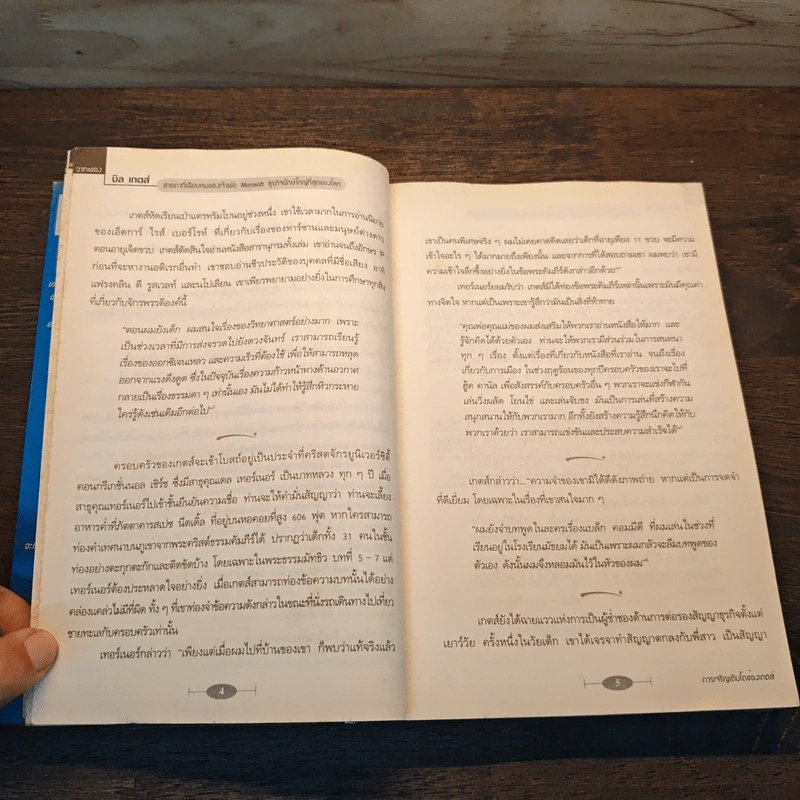 วาทะของ
บิล เกตส์
สายตาที่เฉียบคมของเจ้าพ่อ Microsoft ธุรกิจยักษ์ใหญ่ที่สุดของโลก
เกตส์หัดเรียนเป่าแตรทรัมโบนอยู่ช่วงหนึ่ง เขาใช้เวลามากในการอ่านนิยาย
ของเอ็ดการ์ ไรส์ เบอร์โรห์ ที่เกี่ยวกับเรื่องของทาร์ซานและมนุษย์ต่างดาว
ตอนอายุเจ็ดขวบ เกตส์ตัดสินใจอ่านหนังสือสารานุกรมทั้งเล่ม เขาอ่านจนถึงอักษร P
ก่อนที่จะหางานอดิเรกอื่นทำ เขาชอบอ่านชีวประวัติของบุคคลที่มีชื่อเสียง อาทิ
แฟรงคลิน ดี รูสเวลท์ และนโปเลียน เขาเพียรพยายามอย่างยิ่งในการศึกษาทุกสิ่ง
ที่เกี่ยวกับจักรพรรดิองค์นี้
"ตอนผมยังเด็ก ผมสนใจเรื่องของวิทยาศาสตร์อย่างมาก เพราะ
เป็นช่วงเวลาที่มีการส่งจรวดไปยังดวงจันทร์ เราสามารถเรียนรู้
เรื่องของออกซิเจนเหลว และความเร็วที่ต้องใช้ เพื่อให้สามารถหลุด
ออกจากแรงดึงดูด ซึ่งในปัจจุบันเรื่องความก้าวหน้าทางด้านอวกาศ
กลายเป็นเรื่องธรรมดา ๆ เท่านั้นเอง มันไม่ได้ทำให้รู้สึกหิวกระหาย
ใคร่รู้ดังเช่นเดิมอีกต่อไป"
ครอบครัวของเกตส์จะเข้าโบสถ์อยู่เป็นประจำที่คริสตจักรยูนิเวอร์ซิตี้
คอนกรีเกชั่นนอล เชิร์ช ซึ่งมีสาธุคุณเดล เทอร์เนอร์ เป็นบาทหลวง ทุก ๆ ปี เมื่อ
สาธุคุณเทอร์เนอร์ไปเข้าชั้นยืนยันความเชื่อ ท่านจะให้คำมั่นสัญญาว่า ท่านจะเลี้ยง
อาหารค่ำที่ภัตตาคารสเปซ นีดเดิ้ล ที่อยู่บนหอคอยที่สูง 606 ฟุต หากใครสามารถ
ท่องคำเทศนาบนภูเขาจากพระคริสต์ธรรมคัมภีร์ได้ ปรากฏว่าเด็กทั้ง 31 คนในชั้น
ท่องอย่างตะกุกตะกักและติดขัดบ้าง โดยเฉพาะในพระธรรมมัทธิว บทที่ 5 – 7 แต่
เทอร์เนอร์ต้องประหลาดใจอย่างยิ่ง เมื่อเกตส์สามารถท่องข้อความบทนั้นได้อย่าง
คล่องแคล่วไม่มีที่ผิด ทั้ง ๆ ที่เขาท่องจำข้อความดังกล่าวในขณะที่นั่งรถเดินทางไปเที่ยว
ชายทะเลกับครอบครัวเท่านั้น
เทอร์เนอร์กล่าวว่า "เพียงแต่เมื่อผมไปที่บ้านของเขา ก็พบว่าแท้จริงแล้ว
4
เขาเป็นคนพิเศษจริง ๆ ผมไม่เคยคาดคิดเลยว่าเด็กที่อายุเพียง 11 ขวบ จะมีความ
เข้าใจอะไร ๆ ได้มากมายถึงเพียงนั้น และจากการที่ได้สอบถามเขา ผมพบว่า เขามี
ความเข้าใจลึกซึ้งอย่างยิ่งในข้อพระคัมภีร์ดังกล่าวอีกด้วย"
เทอร์เนอร์ยอมรับว่า เกตส์มิได้ท่องข้อพระคัมภีร์เหล่านั้นเพราะมันมีคุณค่า
ทางจิตใจ หากแต่เป็นเพราะเขารู้สึกว่ามันเป็นสิ่งที่ท้าทาย
"คุณพ่อคุณแม่ของผมส่งเสริมให้พวกเราอ่านหนังสือให้มาก และ
รู้จักคิดได้ด้วยตัวเอง ท่านจะให้พวกเรามีส่วนร่วมในการสนทนา
ทุก ๆ เรื่อง ตั้งแต่เรื่องที่เกี่ยวกับหนังสือที่เราอ่าน จนถึงเรื่อง
เกี่ยวกับการเมือง ในช่วงฤดูร้อนของทุกปีครอบครัวของเราจะไปที่
ฮู้ด คานัล เพื่อสังสรรค์กับครอบครัวอื่น ๆ พวกเราจะแข่งกีฬากัน
เล่นวิ่งผลัด โยนไข่ และเล่นจับธง มันเป็นการเล่นที่สร้างความ
สนุกสนานให้กับพวกเรามาก อีกทั้งยังสร้างความรู้สึกนึกคิดให้กับ
พวกเราด้วยว่า เราสามารถแข่งขันและประสบความสำเร็จได้"
เกตส์กล่าวว่า..."ความจำของเขามิได้ดีดังภาพถ่าย หากแต่เป็นการจดจำ
ที่ดีเยี่ยม โดยเฉพาะในเรื่องที่เขาสนใจมาก ๆ
"ผมยังจำบทพูดในละครเรื่องแบล็ก คอมมิดี ที่ผมเล่นในช่วงที่
เรียนอยู่ในโรงเรียนมัธยมได้ มันเป็นเพราะผมกลัวจะลืมบทพูดของ
ตัวเอง ดังนั้นผมจึงหลอมมันไว้ในหัวของผม"
เกตส์ยังได้ฉายแววแห่งการเป็นผู้ช่ำชองด้านการต่อรองสัญญาธุรกิจตั้งแต่
เยาว์วัย ครั้งหนึ่งในวัยเด็ก เขาได้เจรจาทำสัญญาตกลงกับพี่สาว เป็นสัญญา
5
การเจริญเติบโตของเกตส์